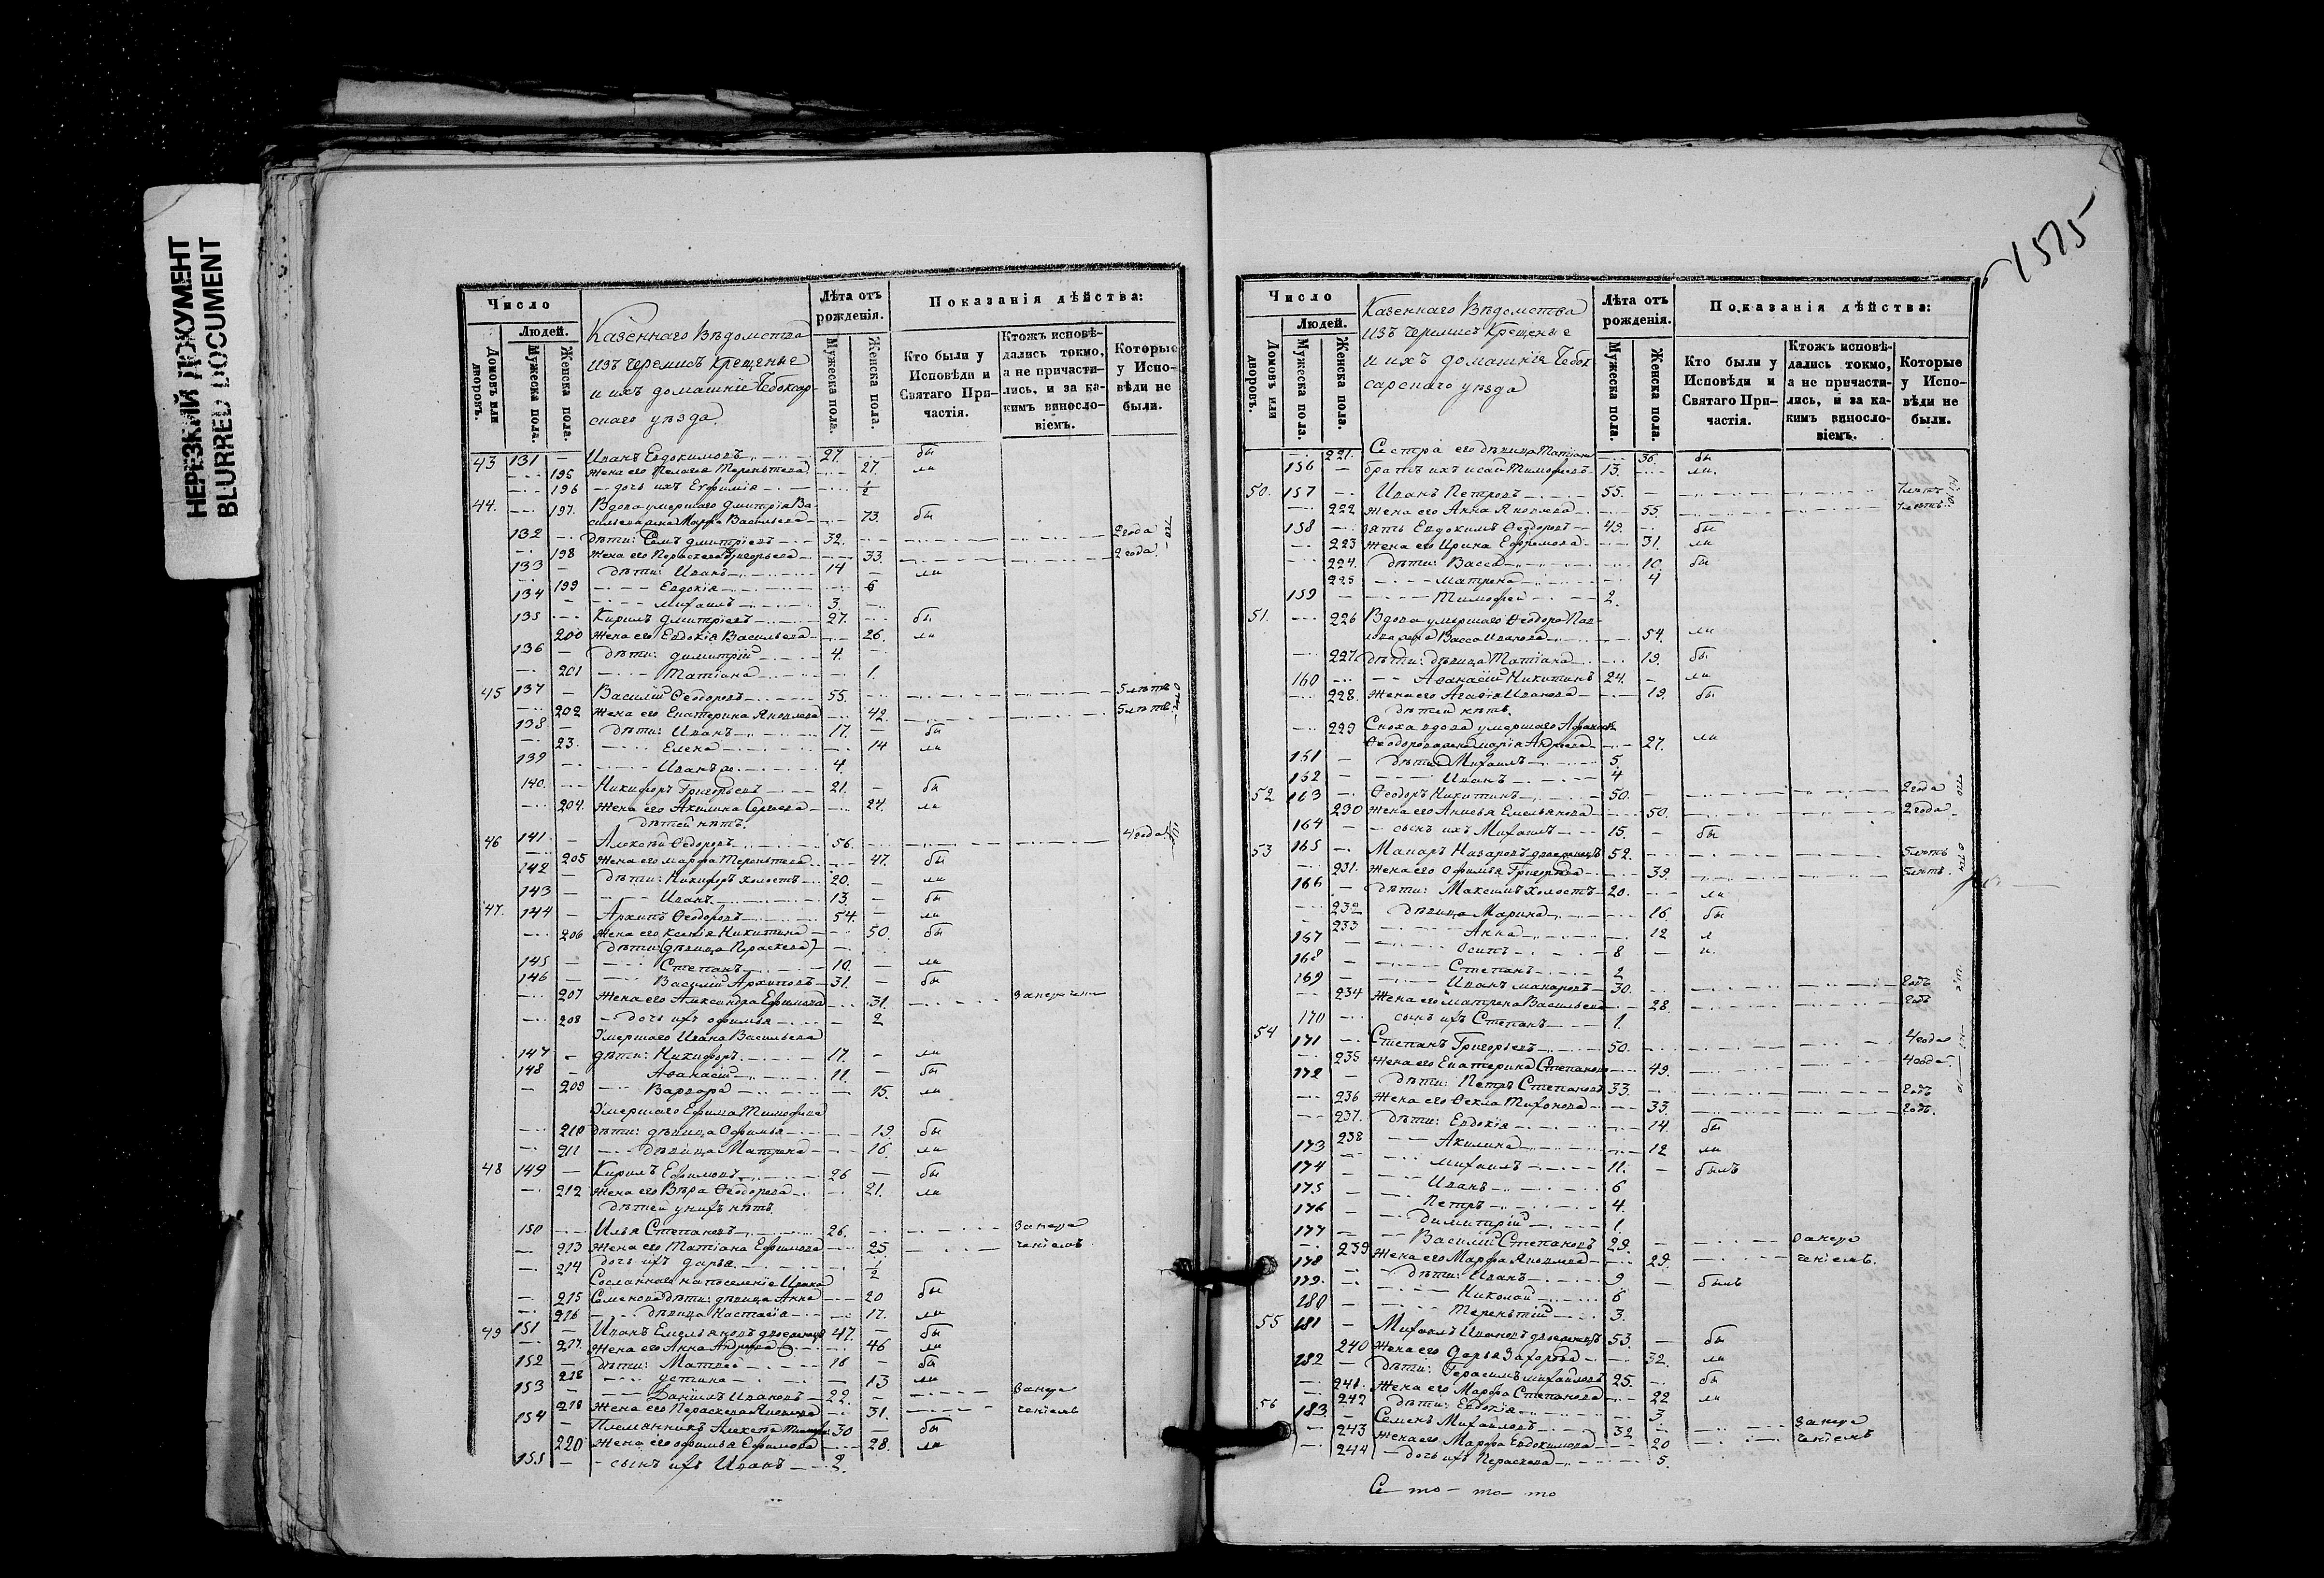 НЕРЕЗКИЙ ДОКУМЕНТ
BLURRED DOCUMENT
Число
Людей.
Домовъ или дворовъ.
Мужеска пола.
Женска пола.
Казеннаго Вѣдомства
изъ черемисъ крещеные
и ихъ домашніе Чебоксар-
скаго уѣзда.
Лѣта отъ рожденія.
Мужеска пола.
Женска пола.
Показанія дѣйства:
Кто были у Исповѣди и Святаго При-частія.
Ктожъ исповѣ-дались токмо, а не причасти-лись, и за ка-кимъ винословіемъ.
Которые у Испо-вѣди не были.
43 131 — Иванъ Евдокимовъ 27. бы
195 жена его Пелагея Терентьева 27. ли
196 — дочь ихъ Евфимія ½
44. 197. Вдова умершаго Дмитрія Ва-
сильева жена Марфа Васильева 73. бы
132 дѣти: Семъ Дмитріевъ 32. 2 года
198 жена его Параскева Григорьева 33. 2 года
133 дѣти: Иванъ 14 ли
199 Евдокія 6
134 Михаилъ 3.
135 Кирилъ Дмитріевъ 27. бы
200 жена его Евдокія Васильева 26. ли
136 дѣти: Димитрій 4.
201 Татіана 1.
45 137 — Василій Ѳеодоровъ 55. 5 лѣтъ
202 жена его Екатерина Яковлева 42. 5 лѣтъ
138 дѣти: Иванъ 17. бы
23. Елена 14 ли
139 Иванъ 4.
140. Никифоръ Григорьевъ 21. бы
204. жена его Акилина Сергеева 24. ли
дѣтей нѣтъ.
46 141 — Алексѣй Ѳедоровъ 56. 4 года
205 жена его Марфа Терентьева 47. бы
142 дѣти: Никифоръ холостъ 20. ли
143 — Иванъ 13. бы
47. 144 — Архипъ Ѳеодоровъ 54. ли
206 жена его Ксенія Никитина 50. бы
дѣти: (дѣвица Параскева)
145 Степанъ 10. ли
146 Василій Архиповъ 31. бы
207 жена его Александра Ефимова 31.
208 — дочь ихъ Офимья 2
Умершаго Ивана Васильева
147 — дѣти: Никифоръ 17. ли
148 — Аѳанасій 11. бы
209 Варвара 15. ли
Умершаго Ефима Тимофеева
210 дѣти: дѣвица Офимья 19. бы
211 дѣвица Матрена 16. ли
48 149 — Кирилъ Ефимовъ 26 бы
212 жена его Вѣра Ѳеодорова 21. ли
дѣтей у нихъ нѣтъ.
150 Илья Степановъ 26. занера
213 жена его Татіана Ефимова 25. ченіемъ
214 дочь ихъ Дарья ½
Сосланнаго на поселеніе Ивана
215 Семенова дѣти: дѣвица Анна 20 бы
216 дѣвица Настасія 17. ли
49 151 — Иванъ Емельяновъ двоеженецъ 47. бы
217. жена его Анна Андреева 46 ли
152 — дѣти: Матвей 16 бы
218 Устина 13 ли
153 Данилъ Ивановъ 22. занера
219 жена его Параскева Яковлева 31. ченіемъ
154 Племянникъ Алексѣй 30 бы
220 жена его Офимья Ефимова 28. ли
155 — сынъ ихъ Иванъ 2.
1575
Число
Людей.
Домовъ или дворовъ.
Мужеска пола.
Женска пола.
Казеннаго Вѣдомства
изъ черемисъ крещеные
и ихъ домашнія Чебок
сарскаго уѣзда
Лѣта отъ рожденія.
Мужеска пола.
Женска пола.
Показанія дѣйства:
Кто были у Исповѣди и Святаго При-частія.
Ктожъ исповѣ-дались токмо, а не причасти-лись, и за ка-кимъ винословіемъ.
Которые у Испо-вѣди не были.
221. Сестра его дѣвица Матрена 36 бы
156 — братъ ихъ Исай Тимофеевъ 13. ли.
50. 157 Иванъ Петровъ 55. 7 лѣтъ
222 жена его Анна Яковлева 55. 7 лѣтъ
158 зять Евдокимъ Ѳеодоровъ 49. бы
223 жена его Ирина Ефремова 31. ли
224. дѣти: Васса 10. бы
225 Матрена 4
159 Тимофей 2.
51. 226 Вдова умершаго Ѳеодора Пав-
лова жена Васса Иванова 54. ли
227. дѣти: дѣвица Татіана 19. бы
160 Аѳанасій Никитинъ 24. ли
228. жена его Агафія Иванова 19. бы
дѣтей нѣтъ.
229 Сноха вдова умершаго Афанасія
Ѳеодорова жена Марія Андреева 27. ли
161 — дѣти: Михаилъ 5.
162 — Иванъ 4
52 163 Ѳеодоръ Никитинъ 50. 2 года
230 жена его Анисья Емельянова 50. 2 года
164 — сынъ ихъ Михаилъ 15. бы
53 165 — Макаръ Назаровъ двоеженецъ 52. 5 лѣтъ
231. жена его Офимья Григорьева 39. 5 лѣтъ.
166 — дѣти: Максимъ холостъ 20. ли
232 дѣвица Марина 16. бы
233 Анна 12 л
167 Осипъ 8 и.
168 Степанъ 2
169 Иванъ Макаровъ 30. годъ
234 жена его Матрена Васильева 28. годъ
170 сынъ ихъ Степанъ 1.
54 171 Степанъ Григорьевъ 50. 4 года
235 жена его Екатерина Степанова 49. 4 года.
172 дѣти: Петръ Степановъ 33. годъ
236 жена его Ѳекла Тихонова 33. годъ.
237. дѣти: Евдокія 14. бы
238 Акилина 12 ли
173 Михаилъ 11. былъ
174 Иванъ 6
175 Петръ 4.
176 Димитрій 1.
177 Василій Степановъ 29. занера
239 жена его Марфа Яковлева 29. ченіемъ.
178 дѣти: Иванъ 9 былъ
179. Николай 6
180 Терентій 3.
55 181 — Михаилъ Ивановъ двоеженецъ 53. бы
240 жена его Дарья Захарова 32. ли
182 дѣти: Герасимъ Михайловъ 25. бы
241. жена его Марфа Степанова 22 ли
242 дѣти: Евдокія 3.
56 183. Семенъ Михайловъ 32 занера
243 жена его Марфа Евдокимова 20 ченіемъ
244 — дочь ихъ Параскева 5.
Се— то — то — то